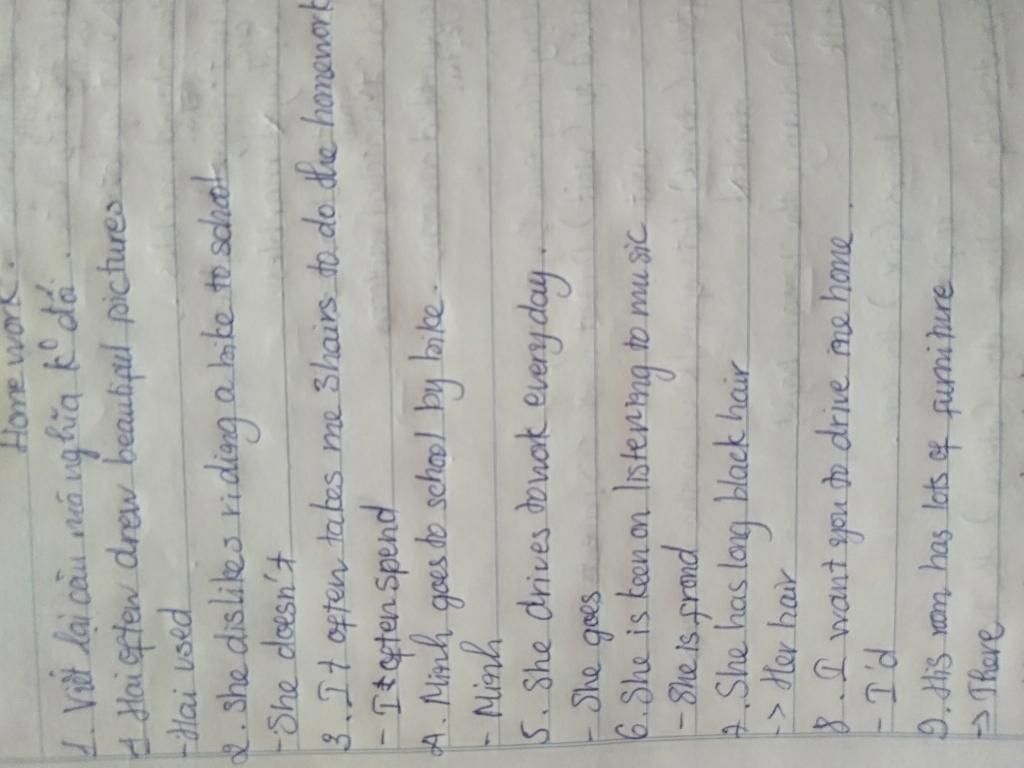 Homework.
1. Viết lại câu mà nghĩa k° đổi.
1. Hai often drew beautiful pictures
- Hai used
2. She dislikes riding a bike to school
- She doesn't
3. It often takes me 3hairs to do the homework
- I often spend
4. Minh goes to school by bike.
- Minh
5. She drives to work everyday.
- She goes
6. She is keen on listening to music
- She is
7. She has long black hair
-> Her hair
8. I want you to drive me home.
- I'd
9. His room has lots of furniture
-> There